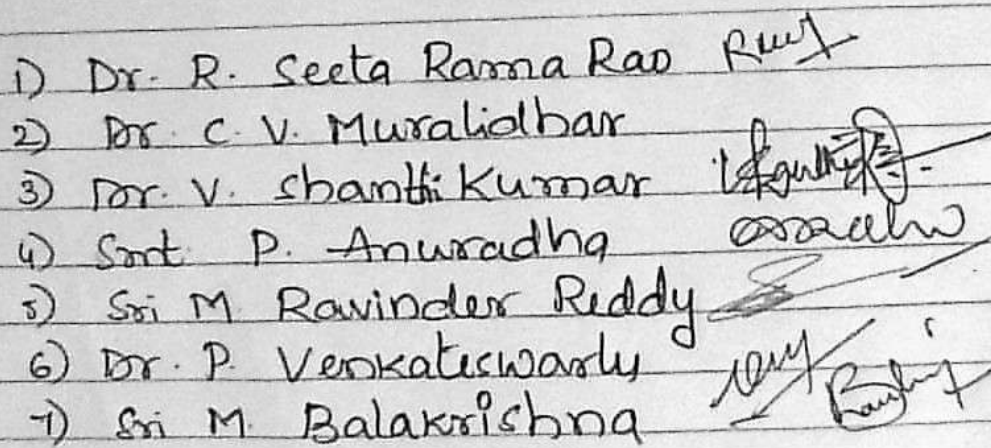 1) Dr. R. Seeta Rama Rao
2) Dr. C. V. Muralidhar
3) Dr. V. Shanthi Kumar
4) Smt P. Anuradha
5) Sri M Ravinder Reddy
6) Dr. P. Venkateswarlu
7) Sri M. Balakrishna